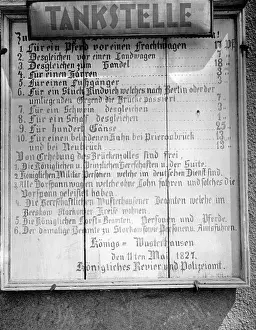 TANKSTELLE
1. Für ein Pferd vor einen Frachtwagen 17
2. Desgleichen vor einen Landwagen 7
3. Desgleichen zum Handel 18
4. Für einen Karren
5. Für einen Fußgänger
6. Für ein Stück Rindvieh welches nach Berlin oder der
umliegenden Gegend die Brücke passiert 7
7. Für ein Schwein desgleichen
8. Für ein Schaf desgleichen
9. Für hundert Gänse
10. Für einen beladenen Kahn bei Prierosbrück 13
und bei Neubrück
Von Erhebung des Brückenzolls sind frei,
1. Die Königlichen u. Prinzlichen Herrschaften u. der Suite.
2. Königlichen Militär Personen welche im deutschen Dienst sind.
3. Alle Vorspannwagen welche ohne Lohn fahren und solches die
Vorspann geleistet haben
4. Die Herrschaftlichen Wusterhausener Beamten welche im
Beeskow Storkower Kreise wohnen
5. Die Königlichen Forst-Beamten Personen und Pferde.
6. Der damalige Beamte zu Storkow Personen u. Amtsfuhren.
Königs = Wusterhausen
den 11ten Mai 1827.
Königliches Revier und Polizeiamt.